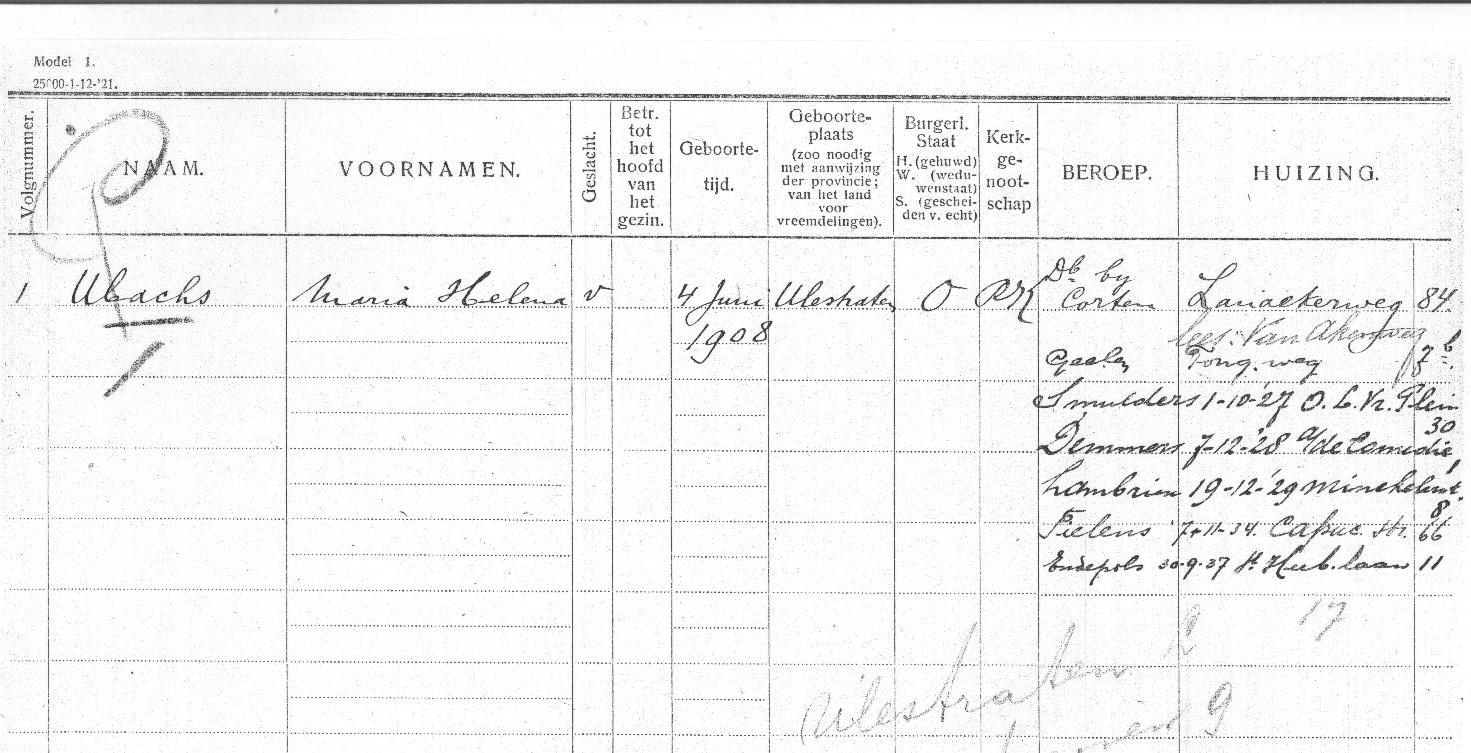 Model 1.
25000-1-12-'21.
Volgnummer.
NAAM.
VOORNAMEN.
Geslacht.
Betr.
tot
het
hoofd
van
het
gezin.
Geboorte-
tijd.
Geboorte-
plaats
(zoo noodig
met aanwijzing
der provincie;
van het land
voor
vreemdelingen).
Burgerl.
Staat
H. (gehuwd)
W. (wedu-
wenstaat)
S. (geschei-
den v. echt)
Kerk-
ge-
noot-
schap
BEROEP.
HUIZING.
1 Ubachs Maria Helena v 4 Juni Ulestraten O RK
1908
Db by
Corten Lanackerweg 84.
lees: Van Akenweg
Geelen Tong. weg 7b.
Smulders 1-10-'27 O. L. Vr. Plein
30
Demmers 7-12-'28 a/de Comedie 1
Lambrien 19-12-'29 Minckelerst.
8
Tielens 7-11-34. Capuc. str. 66
Endepols 30-9-37 St Hub. laan 11
17
Ulestraten
9